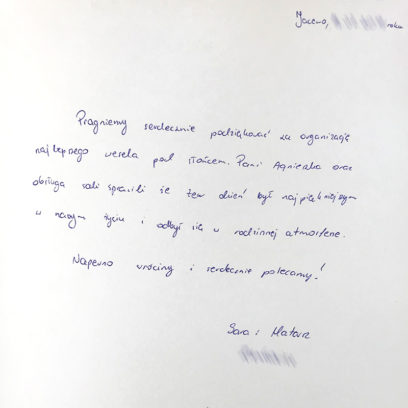 Jacewo, roku
Pragniemy serdecznie podziękować za organizację
najlepszego wesela pod słońcem. Pani Agnieszka oraz
obsługa sali sprawili że ten dzień był najpiękniejszym
w naszym życiu i odbył się w rodzinnej atmosferze.
Napewno wrócimy i serdecznie polecamy!
Sara i Mateusz